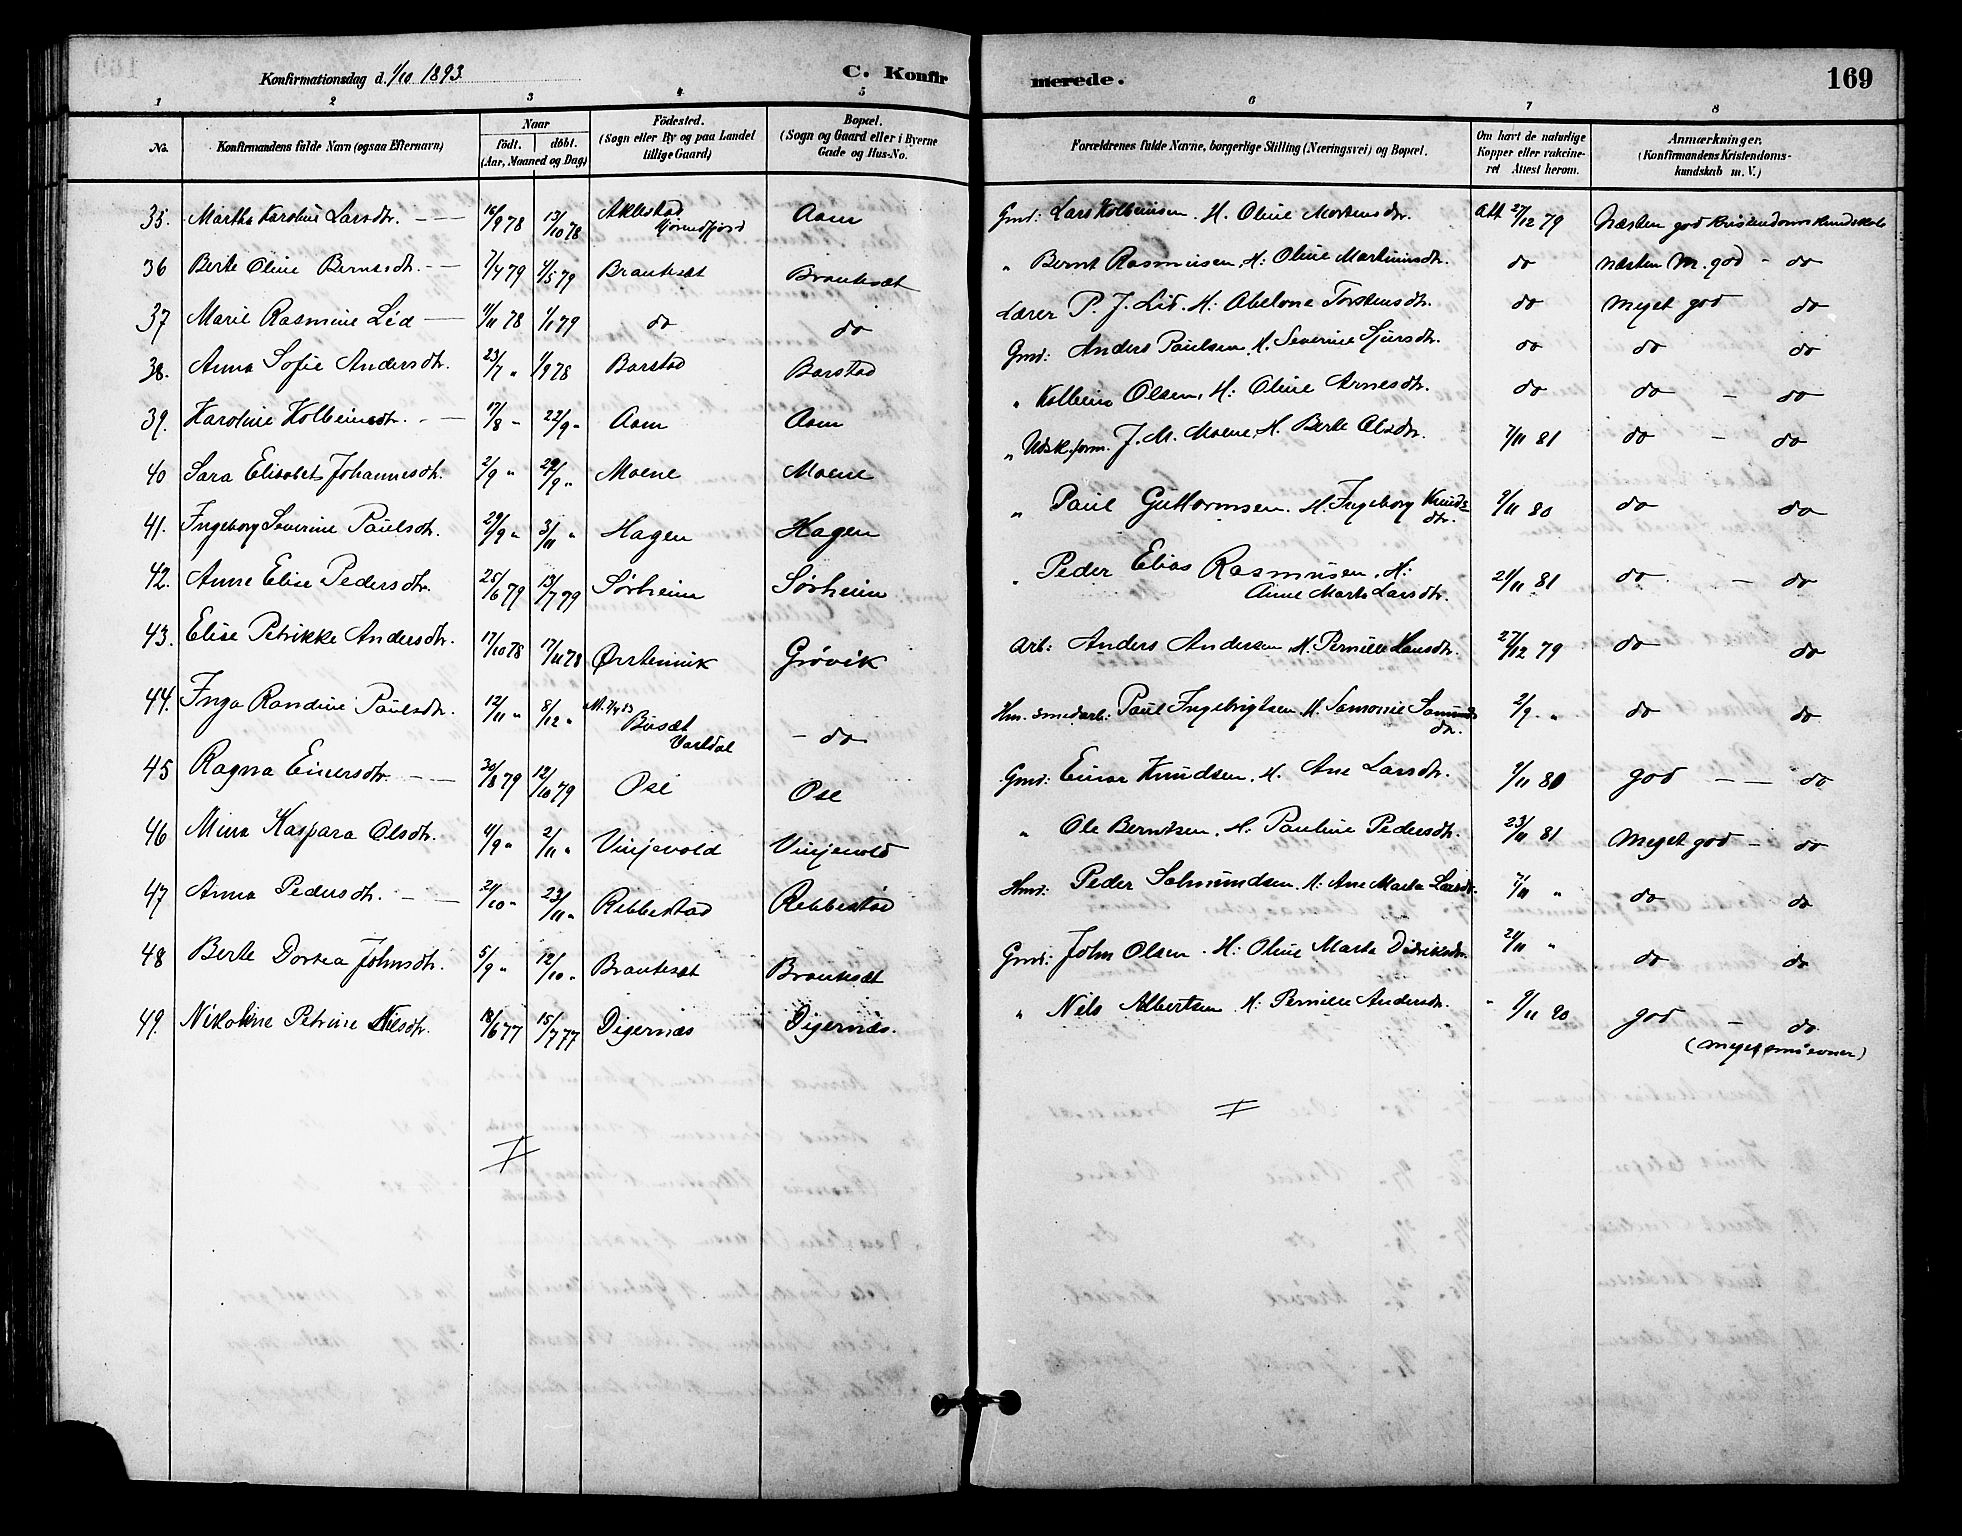 Konfirmationsdag d. 1/10 1893.
C. Konfir
merede.
169
1 2 3 4 5 6 7 8
No. Konfirmandens fulde Navn (ogsaa Efternavn) Naar födt. döbt. (Aar, Maaned og Dag) Födested. (Sogn eller By og paa Landet tillige Gaard) Bopæl. (Sogn og Gaard eller i Byerne Gade og Hus-No. Forældrenes fulde Navne, borgerlige Stilling (Næringsvei) og Bopæl. Om havt de naturlige Kopper eller vakcineret Attest herom. Anmærkninger. (Konfirmandens Kristendomskundskab m. V.)
35. Martha Karoline Larsdtr. 16/9 78 13/10 78 Aklestad Hjörundfjord Aam Gmd: Lars Kolbeinsen. H. Oline Mortensdtr. Att 27/12 79 Næsten god Kristendomskundskab
36 Berte Oline Berntsdtr. 7/4 79 4/5 79 Brautesæt Brautesæt " Bernt Rasmusen, H: Oline Martinusdtr. do Næsten M. god - do
37 Marie Rasmine Lid 4/11 78 1/1 79 do do Lærer P. J. Lid. H: Abelone Torstensdtr. do Meget god do
38. Anna Sofie Andersdtr. 23/7 " 1/9 78 Barstad Barstad Gmd: Anders Paulsen. H. Severine Sjursdtr. do do do
39. Karoline Kolbeinsdtr. 17/8 " 22/9 " Aam Aam " Kolbein Olsen, H: Oline Arnesdtr. do do - do
40 Sara Elisabet Johannesdtr. 2/9 " 29/9 " Moene Moene " Udsk.form. J. M. Moene, H. Berte Olsdtr. 7/11 81 do - do
41. Ingeborg Severine Paulsdtr. 29/9 " 3/11 " Hagen Hagen " Paul Guttormsen. H. Ingeborg Knudsdtr. 9/11 80 do do
42. Anne Elise Pedersdtr. 25/6 79 13/7 79 Sörheim Sörheim " Peder Elias Rasmusen, H: Anne Marte Larsdtr. 21/11 81 do - do
43. Elise Petrikke Andersdtr. 17/10 78 17/11 78 Ørstenvik Grövik Arb: Anders Andersen, H. Pernille Hansdtr. 27/12 79 do do
44. Inga Randine Paulsdtr. 12/11 " 8/12 " Busæt Vartdal - do Hm. smedarb: Paul Ingebrigtsen. H. Samonie Samundsdtr. 2/9 " do do
45 Ragna Einersdtr. 30/8 79 12/10 79 Ose Ose Gmd: Einar Knudsen. H. Ane Larsdtr. 9/11 80 god - - do
46 Mina Kaspara Olsdtr. 4/9 " 2/11 " Vinjevold Vinjevold " Ole Berntsen, H. Pauline Pedersdtr. 23/11 81 Meget god - do
47 Anna Pedersdtr. 21/10 " 23/11 " Ribbestad Ribbestad Hmd: Peder Salmundsen. H: Ane Marta Larsdtr. 7/11 " do do
48 Berte Dortea Johnsdtr. 5/9 " 12/10 " Brautesæt Brautesæt Gmd: John Olsen. H: Oline Marta Didriksdtr. 21/11 " do do
49. Nikoline Petrine Nilsdtr. 18/6 77 15/7 77 Digernæs Digernæs. " Nils Albertsen H: Pernille Andersdtr. 9/11 80 god - do
(meget små evner)